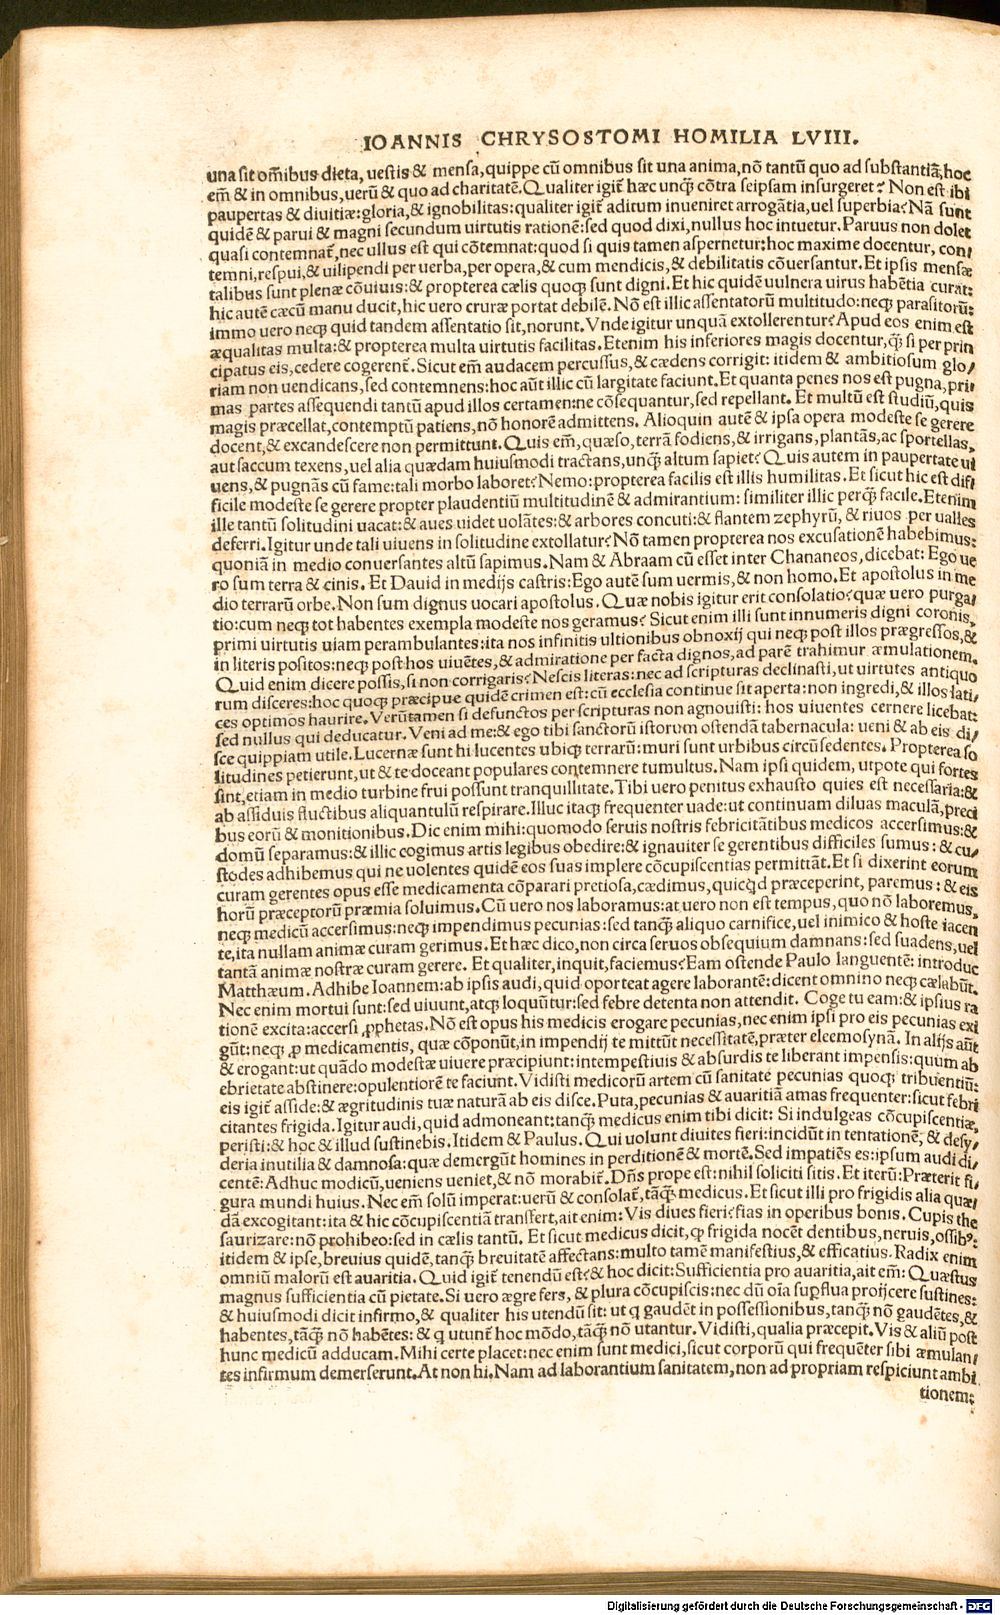 IOANNIS CHRYSOSTOMI HOMILIA LVIII.
una sit om̃ibus dieta, uestis & mensa, quippe cũ omnibus sit una anima, nõ tantũ quo ad substantiã, hoc
em̃ & in omnibus, uerũ & quo ad charitatẽ. Qualiter igit̃ hæc unq̃ cõtra seipsam insurgeret? Non est ibi
paupertas & diuitiæ: gloria, & ignobilitas: qualiter igit̃ aditum inueniret arrogãtia, uel superbia? Nã sunt
quidẽ & parui & magni secundum uirtutis rationẽ: sed quod dixi, nullus hoc intuetur. Paruus non dolet
quasi contemnat̃, nec ullus est qui cõtemnat: quod si quis tamen aspernetur: hoc maxime docentur, con/
temni, respui, & uilipendi per uerba, per opera, & cum mendicis, & debilitatis cõuersantur. Et ipsis mensæ
talibus sunt plenæ cõuiuis: & propterea cælis quoq; sunt digni. Et hic quidẽ uulnera uirus habẽtia curat:
hic autẽ cæcũ manu ducit, hic uero cruræ portat debilẽ. Nõ est illic assentatorũ multitudo: neq; parasitorũ:
immo uero neq; quid tandem assentatio sit, norunt. Vnde igitur unquã extollerentur? Apud eos enim est
æqualitas multa: & propterea multa uirtutis facilitas. Etenim his inferiores magis docentur, q̃ si per prin
cipatus eis, cedere cogerent̃. Sicut em̃ audacem percussus, & cædens corrigit: itidem & ambitiosum glo/
riam non uendicans, sed contemnens: hoc aũt illic cũ largitate faciunt. Et quanta penes nos est pugna, pri/
mas partes assequendi tantũ apud illos certamen: ne cõsequantur, sed repellant. Et multũ est studiũ, quis
magis præcellat, contemptũ patiens, nõ honorẽ admittens. Alioquin autẽ & ipsa opera modeste se gerere
docent, & excandescere non permittunt. Quis em̃, quæso, terrã fodiens, & irrigans, plantãs, ac sportellas,
aut saccum texens, uel alia quædam huiusmodi tractans, unq̃ altum sapiet? Quis autem in paupertate ui
uens, & pugnãs cũ fame: tali morbo laboret? Nemo: propterea facilis est illis humilitas. Et sicut hic est diffi
ficile modeste se gerere propter plaudentiũ multitudinẽ & admirantium: similiter illic perq̃ facile. Etenim
ille tantũ solitudini uacat: & aues uidet uolãtes: & arbores concuti: & flantem zephyrũ, & riuos per ualles
deferri. Igitur unde tali uiuens in solitudine extollatur? Nõ tamen propterea nos excusationẽ habebimus:
quoniã in medio conuersantes altũ sapimus. Nam & Abraam cũ esset inter Chananeos, dicebat: Ego ue
ro sum terra & cinis. Et Dauid in medijs castris: Ego autẽ sum uermis, & non homo. Et apostolus in me
dio terrarũ orbe. Non sum dignus uocari apostolus. Quæ nobis igitur erit consolatio? quæ uero purga/
tio: cum neq; tot habentes exempla modeste nos geramus? Sicut enim illi sunt innumeris digni coronis,
primi uirtutis uiam perambulantes: ita nos infinitis ultionibus obnoxij qui neq; post illos prægressos, &
in literis positos: neq; post hos uiuẽtes, & admiratione per facta dignos, ad parẽ trahimur æmulationem.
Quid enim dicere possis, si non corrigaris? Nescis literas: nec ad scripturas declinasti, ut uirtutes antiquo
rum disceres: hoc quoq; præcipue quidẽ crimen est: cũ ecclesia continue sit aperta: non ingredi, & illos lati/
ces optimos haurire. Verũtamen si defunctos per scripturas non agnouisti: hos uiuentes cernere licebat:
sed nullus qui deducatur. Veni ad me: & ego tibi sanctorũ istorum ostendã tabernacula: ueni & ab eis di/
sce quippiam utile. Lucernæ sunt hi lucentes ubiq; terrarũ: muri sunt urbibus circũsedentes. Propterea so
litudines petierunt, ut & te doceant populares contemnere tumultus. Nam ipsi quidem, utpote qui fortes
sint, etiam in medio turbine frui possunt tranquillitate. Tibi uero penitus exhausto quies est necessaria: &
ab assiduis fluctibus aliquantulũ respirare. Illuc itaq; frequenter uade: ut continuam diluas maculã, preci
bus eorũ & monitionibus. Dic enim mihi: quomodo seruis nostris febricitãtibus medicos accersimus: &
domũ separamus: & illic cogimus artis legibus obedire: & ignauiter se gerentibus difficiles sumus: & cu/
stodes adhibemus qui ne uolentes quidẽ eos suas implere cõcupiscentias permittãt. Et si dixerint eorum
curam gerentes opus esse medicamenta cõparari pretiosa, cædimus, quicq̃d præceperint, paremus: & eis
horũ præceptorũ præmia soluimus. Cũ uero nos laboramus: at uero non est tempus, quo nõ laboremus,
neq; medicũ accersimus: neq; impendimus pecunias: sed tanq̃ aliquo carnifice, uel inimico & hoste iacen
te, ita nullam animæ curam gerimus. Et hæc dico, non circa seruos obsequium damnans: sed suadens, uel
tantã animæ nostræ curam gerere. Et qualiter, inquit, faciemus? Eam ostende Paulo languentẽ: introduc
Matthæum. Adhibe Ioannem: ab ipsis audi, quid oporteat agere laborantẽ: dicent omnino neq; cælabũt.
Nec enim mortui sunt: sed uiuunt, atq; loquũtur: sed febre detenta non attendit. Coge tu eam: & ipsius ra
tionẽ excita: accersi ꝓphetas. Nõ est opus his medicis erogare pecunias, nec enim ipsi pro eis pecunias exi
gũt: neq; ꝓ medicamentis, quæ cõponũt, in impendij te mittũt necessitatẽ, præter eleemosynã. In alijs aũt
& erogant: ut quãdo modestæ uiuere præcipiunt: intempestiuis & absurdis te liberant impensis: quum ab
ebrietate abstinere: opulentiorẽ te faciunt. Vidisti medicorũ artem cũ sanitate pecunias quoq; tribuentiũ:
eis igit̃ asside: & ægritudinis tuæ naturã ab eis disce. Puta, pecunias & auaritiã amas frequenter: sicut febri
citantes frigida. Igitur audi, quid admoneant: tanq̃ medicus enim tibi dicit: Si indulgeas cõcupiscentiæ,
peristi: & hoc & illud sustinebis. Itidem & Paulus. Qui uolunt diuites fieri: incidũt in tentationẽ, & desy/
deria inutilia & damnosa: quæ demergũt homines in perditionẽ & mortẽ. Sed impatiẽs es: ipsum audi di/
centẽ: Adhuc modicũ, ueniens ueniet, & nõ morabit̃. Dñs prope est: nihil soliciti sitis. Et iterũ: Præterit fi/
gura mundi huius. Nec em̃ solũ imperat: uerũ & consolat̃, tãq̃ medicus. Et sicut illi pro frigidis alia quæ/
dã excogitant: ita & hic cõcupiscentiã transfert, ait enim: Vis diues fieri? fias in operibus bonis. Cupis the
saurizare: nõ prohibeo: sed in cælis tantũ. Et sicut medicus dicit, ꝙ frigida nocẽt dentibus, neruis, ossibꝰ:
itidem & ipse, breuius quidẽ, tanq̃ breuitatẽ affectans: multo tamẽ manifestius, & efficatius. Radix enim
omniũ malorũ est auaritia. Quid igit̃ tenendũ est? & hoc dicit: Sufficientia pro auaritia, ait em̃: Quæstus
magnus sufficientia cũ pietate. Si uero ægre fers, & plura cõcupiscis: nec dũ oĩa suꝑflua proijcere sustines:
& huiusmodi dicit infirmo, & qualiter his utendũ sit: ut q gaudẽt in possessionibus, tanq̃ nõ gaudẽtes, &
habentes, tãq̃ nõ habẽtes: & q utunt̃ hoc mõdo, tãq̃ nõ utantur. Vidisti, qualia præcepit. Vis & aliũ post
hunc medicũ adducam. Mihi certe placet: nec enim sunt medici, sicut corporũ qui frequẽter sibi æmulan/
tes infirmum demerserunt. At non hi. Nam ad laborantium sanitatem, non ad propriam respiciunt ambi
tionem:
Digitalisierung gefördert durch die Deutsche Forschungsgemeinschaft - DFG